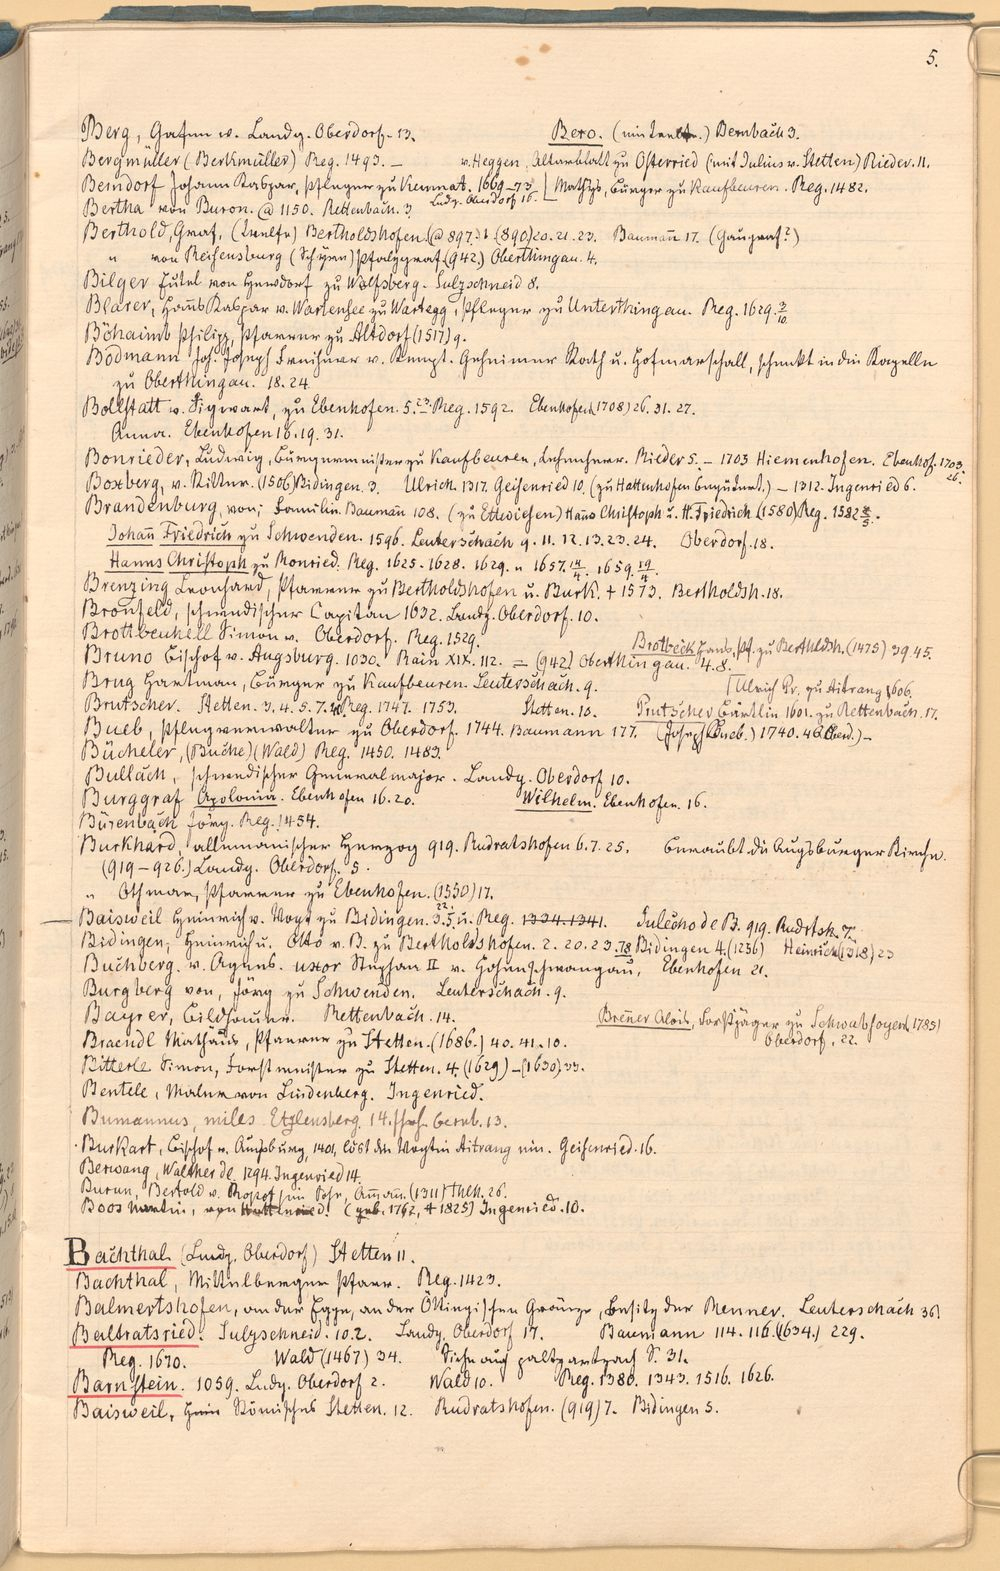 5.
Berg, Grafen v. Landg. Oberdorf. 13. Bero. (mit Bernbach 3.
Bergmüller (Berkmüller) Reg. 1493. — v. Heggen, Altarblatt zu Osterried (mit Julius v. Stetten) Rieder. 11.
Beindorf Johann Kaspar, Pfleger zu Kemnat. 1669–73 Mathÿs, Bürger zu Kaufbeuren. Reg. 1482.
Landg. Oberdorf 16.
Bertha von Buron. @ 1150. Rettenbach. 3
Berthold, Graf, (Welfe) Bertholdshofen. (@ 897. (890) 20. 21. 23. Baumañ 17. (Gaugraf?)
" von Reichensburg (Schyren) Pfalzgraf (942.) Oberthingau. 4.
Bilger Zutel von Heudorf zu Wolfsberg. Sulzschneid 8.
Blarer, Hans Kaspar v. Wartensee zu Wartegg, Pfleger zu Unterthingau. Reg. 1629. 3/10.
Böhaimb Philipp, Pfarrer zu Altdorf (1517) 9.
Bodmann Joh. Joseph Freiherr v. Kempt. Geheimer Rath u. Hofmarschall, schenkt in die Kapelle
zu Oberthingau. 18. 24
Bollstatt v. Sigwart, zu Ebenhofen. 5. 23. Reg. 1592. Ebenhofen (1708) 26. 31. 27.
Anna. Ebenhofen 16. 19. 31.
Bonrieder, Ludwig, Bürgermeister zu Kaufbeuren, Lehenherr. Rieder 5. – 1703 Hiemenhofen. Ebenhof. 1703.
26.
Boxberg, v. Ritter. (1506) Bidingen. 3. Ulrich. 1317. Geisenried 10. (zu Hattenhofen begütert.) – 1312. Ingenried 6.
Brandenburg, von; Familie. Baumañ 108. (zu Ettwichen) Hans Christoph u. H. Friedrich (1580) Reg. 1582
Johañ Friedrich zu Schwenden. 1596. Leuterschach 9. 11. 12. 13. 23. 24. Oberdorf. 18.
Hanns Christoph zu Monried. Reg. 1625. 1628. 1629. " 1657. 14/4. 1659. 19/4.
Brenzing Leonhard, Pfarrer zu Bertholdshofen u. Burk. + 1573. Bertholdsh. 18.
Bronfeld, schwedischer Capitan 1632. Landg. Oberdorf. 10.
Brottbeukell Simon v. Oberdorf. Reg. 1529. Brotbeck Hans, Pf. zu Bertholdsh. (1475) 39. 45.
Bruno Bischof v. Augsburg. 1030. Rain XIX. 112. – (942) Oberthingau. 4. 8.
Brug Hartman, Bürger zu Kaufbeuren. Leuterschach. 9. Ulrich Pr. zu Aitrang 1606.
Brutscher. Stetten. 3. 4. 5. 7. Reg. 1747. 1753. Stetten. 10. Prutscher Bärtlin 1601. zu Rettenbach. 17.
Bueb, Pflegverwalter zu Oberdorf. 1744. Baumann 177. (Joseph Bueb.) 1740. 46 (Oberd.) –
Bücheler, (Buche) (Wald) Reg. 1450. 1483.
Bullach, schwedischer Generalmajor. Landg. Oberdorf 10.
Burggraf Apolonia. Ebenhofen 16. 20. Wilhelm. Ebenhofen. 16.
Bürenbach Jörg. Reg. 1454.
Burkhard, allemanischer Herzog 919. Rudratshofen 6. 7. 25. beraubt die Augsburger Kirche.
(919–926.) Landg. Oberdorf. 5.
" Othmar, Pfarrer zu Ebenhofen. (1550) 17.
Baisweil Heinrich v. Vogt zu Bidingen. 3. 5. 22. u. Reg. 1334. 1341. Julecho de B. 919. Rudrtsh. 7.
Bidingen, Heinrich u. Otto v. B. zu Bertholdshofen. 2. 20. 23. 78 Bidingen 4. (1256) Heinrich (1318) 23
Buchberg. v. Agnes. uxor Stephan II v. Hohenschwangau, Ebenhofen 21.
Burgberg von, Jörg zu Schwenden. Leuterschach. 9.
Bayrer, Bildhauer. Rettenbach. 14. Breñer Alois, Forstjäger zu Schwabhofen (1785)
Oberdorf. 22.
Braendl Mathäus, Pfarrer zu Stetten. (1686.) 40. 41. 10.
Bitterle Simon, Forstmeister zu Stetten. 4. (1629) – (1630). 33.
Bentele, Maler von Lindenberg. Ingenried.
Bumannus, miles Etzlensberg. 14. Bernb. 13.
Burkart, Bischof v. Augsburg, 1401, löst die Vogtei Aitrang ein. Geisenried. 16.
Berwang, Walther de. 1294. Ingenried 14.
Burun, Bertold v. Propst, sein Sohn, Amañ. (1311) Theh. 26.
Boos Martin, von (geb. 1762, + 1825) Ingenried. 10.
Bachthal (Landg. Oberdorf) Stetten 11.
Bachthal, Mittelberger Pfarr. Reg. 1423.
Balmertshofen, an der Egge, an der Öttingischen Gränze, Besitz der Renner. Leuterschach 36.
Baltratsried. Sulzschneid. 10. 2. Landg. Oberdorf 17. Baumann 114. 116. (1634.) 229.
Reg. 1670. Wald (1467) 34. Siehe auch S. 31.
Barnstein. 1059. Ludg. Oberdorf 2. Wald 10. Reg. 1380. 1343. 1516. 1626.
Baisweil, Römisches Stetten. 12. Rudratshofen. (919) 7. Bidingen 5.